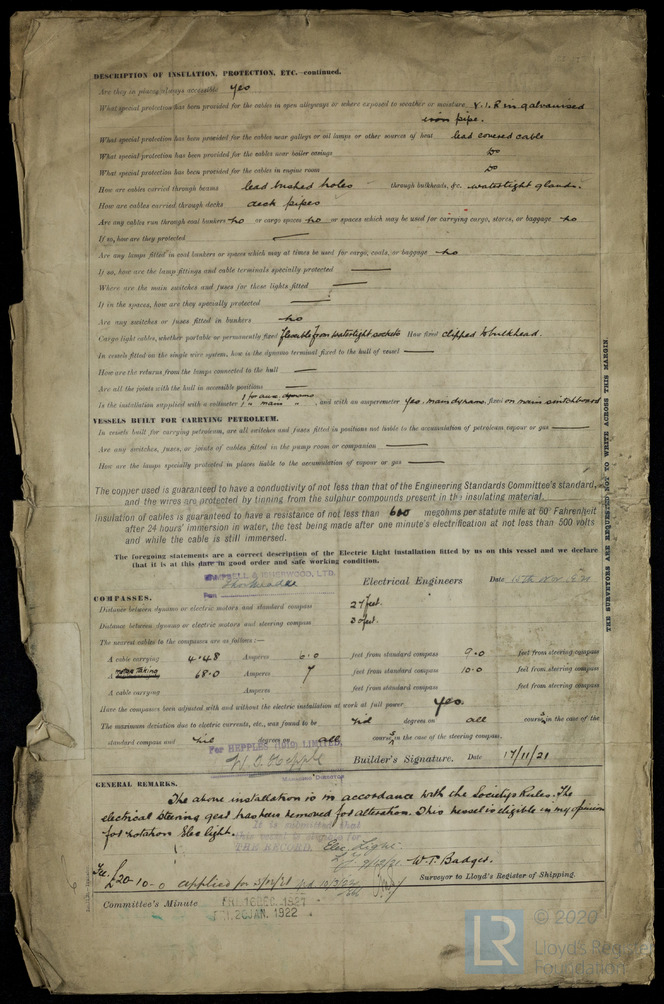 DESCRIPTION OF INSULATION, PROTECTION, ETC.—continued.
Are they in places always accessible yes
What special protection has been provided for the cables in open alleyways or where exposed to weather or moisture V.I.R in galvanised
iron pipe.
What special protection has been provided for the cables near galleys or oil lamps or other sources of heat lead covered cable
What special protection has been provided for the cables near boiler casings Do
What special protection has been provided for the cables in engine room Do
How are cables carried through beams lead bushed holes through bulkheads, &c. watertight glands.
How are cables carried through decks deck pipes
Are any cables run through coal bunkers no or cargo spaces no or spaces which may be used for carrying cargo, stores, or baggage no
If so, how are they protected —
Are any lamps fitted in coal bunkers or spaces which may at times be used for cargo, coals, or baggage no
If so, how are the lamp fittings and cable terminals specially protected —
Where are the main switches and fuses for these lights fitted —
If in the spaces, how are they specially protected —
Are any switches or fuses fitted in bunkers no
Cargo light cables, whether portable or permanently fixed flexible from watertight sockets How fixed clipped to bulkhead.
In vessels fitted on the single wire system, how is the dynamo terminal fixed to the hull of vessel —
How are the returns from the lamps connected to the hull —
Are all the joints with the hull in accessible positions —
Is the installation supplied with a voltmeter 1 for aux. dynamo 1 " main " , and with an amperemeter yes, main dynamo, fixed on main switchboard
VESSELS BUILT FOR CARRYING PETROLEUM.
In vessels built for carrying petroleum, are all switches and fuses fitted in positions not liable to the accumulation of petroleum vapour or gas —
Are any switches, fuses, or joints of cables fitted in the pump room or companion —
How are the lamps specially protected in places liable to the accumulation of vapour or gas —
The copper used is guaranteed to have a conductivity of not less than that of the Engineering Standards Committee's standard,
and the wires are protected by tinning from the sulphur compounds present in the insulating material.
Insulation of cables is guaranteed to have a resistance of not less than 600 megohms per statute mile at 60° Fahrenheit
after 24 hours' immersion in water, the test being made after one minute's electrification at not less than 500 volts
and while the cable is still immersed.
The foregoing statements are a correct description of the Electric Light installation fitted by us on this vessel and we declare
that it is at this date in good order and safe working condition.
CAMPBELL & ISHERWOOD, LTD.
Electrical Engineers Date 15th Nov 1921
COMPASSES.
Distance between dynamo or electric motors and standard compass 27 feet.
Distance between dynamo or electric motors and steering compass 30 feet.
The nearest cables to the compasses are as follows:—
A cable carrying 4.48 Amperes 6.0 feet from standard compass 9.0 feet from steering compass
A 68.0 Amperes 7 feet from standard compass 10.0 feet from steering compass
A cable carrying Amperes feet from standard compass feet from steering compass
Have the compasses been adjusted with and without the electric installation at work at full power yes.
The maximum deviation due to electric currents, etc., was found to be nil degrees on all courses in the case of the
standard compass and nil degrees on all courses in the case of the steering compass.
For HEPPLES (1919) LIMITED,
Builder's Signature. Date 17/11/21
MANAGING DIRECTOR
GENERAL REMARKS.
The above installation is in accordance with the Societys Rules. The
electrical steering gear has been removed for alteration. This vessel is eligible in my opinion
for notation Elec light.
It is submitted that
this vessel is eligible for
THE RECORD. Elec. Light.
9/12/21 W.T. Badger.
Surveyor to Lloyd's Register of Shipping.
Fee £20-10-0 applied for
Committee's Minute FRI. 16 DEC. 1921
FRI. 20 JAN. 1922
THE SURVEYORS ARE REQUESTED NOT TO WRITE ACROSS THIS MARGIN.
LR © 2020
Lloyd's Register
Foundation